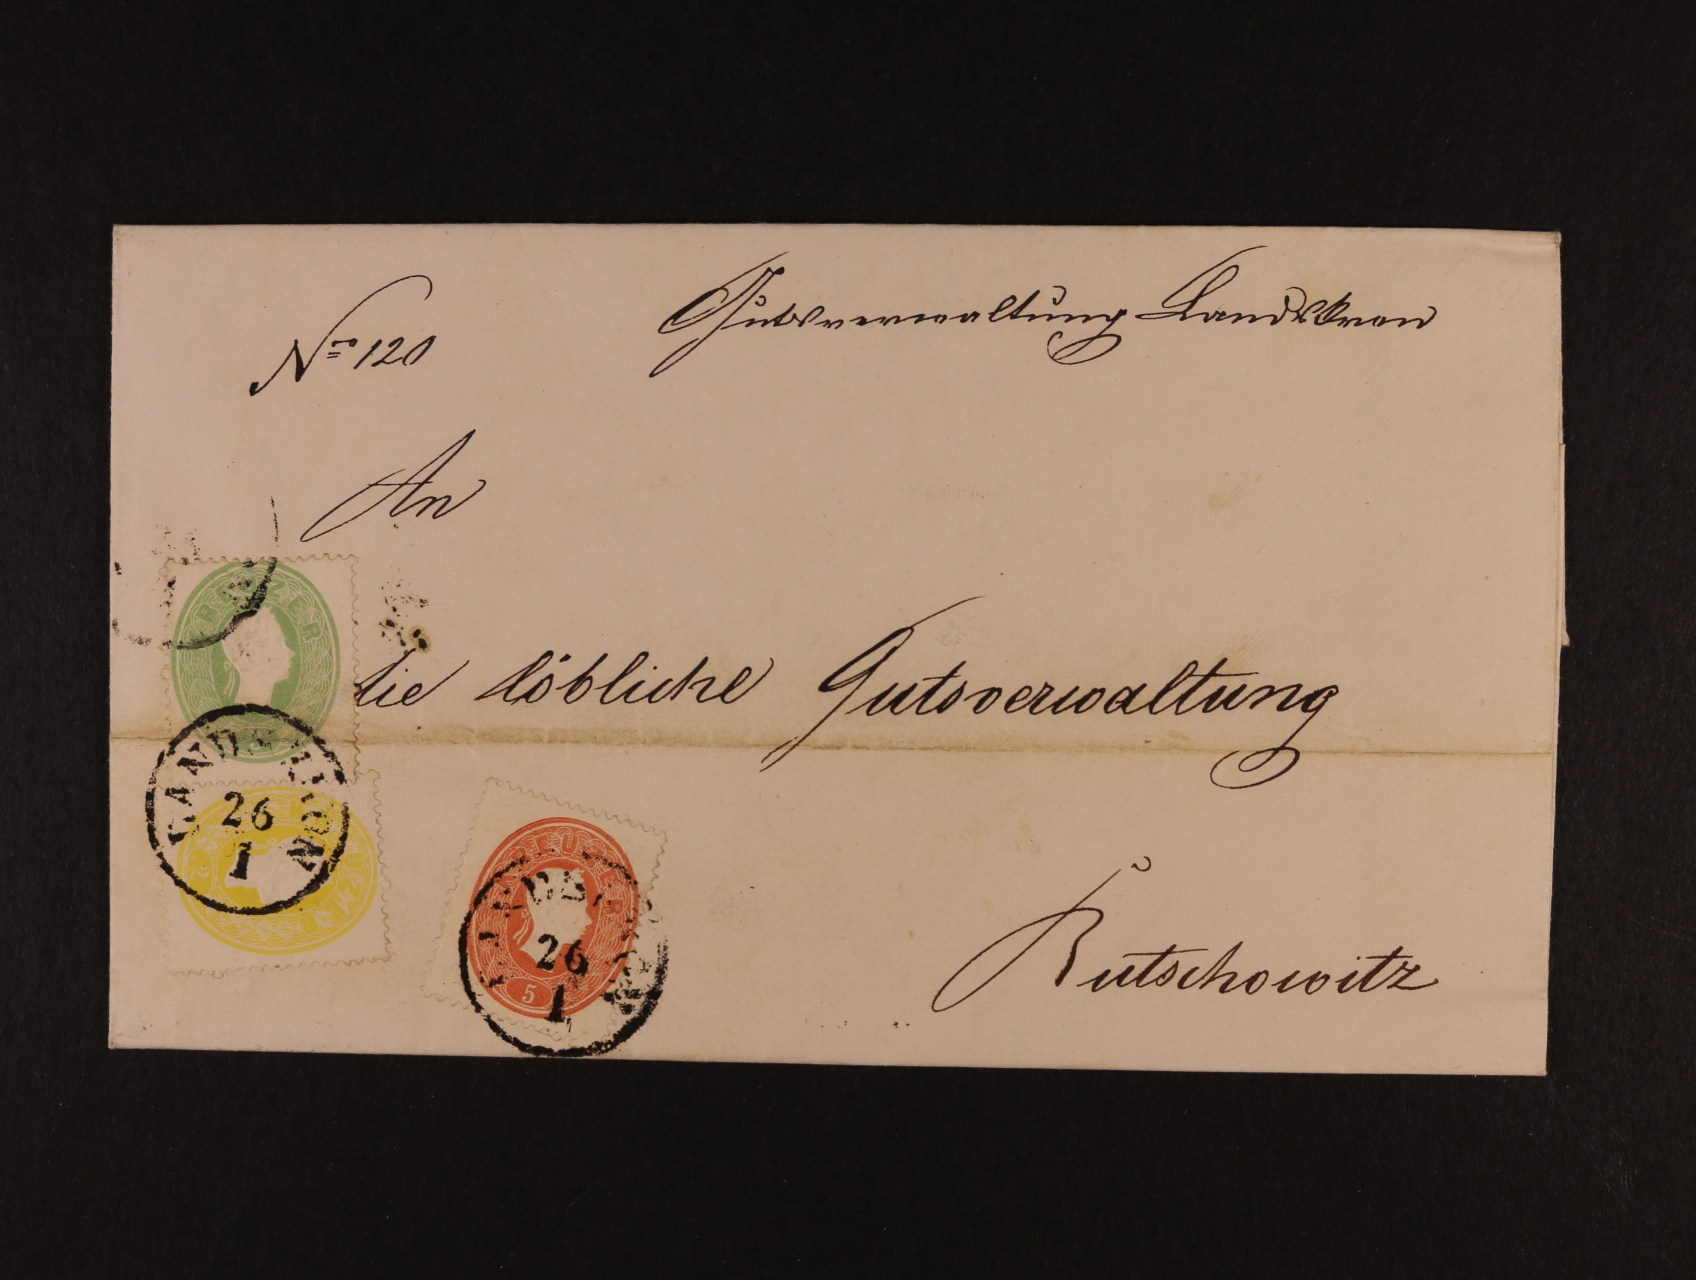 Gutsverwaltung Landskron
Nro 120
An
die löbliche Gutsverwaltung
Butschowitz
KREUZER
LANDSKRON
26
1
2
KREUZER
KREUZER
LANDSKRON
26
1
5